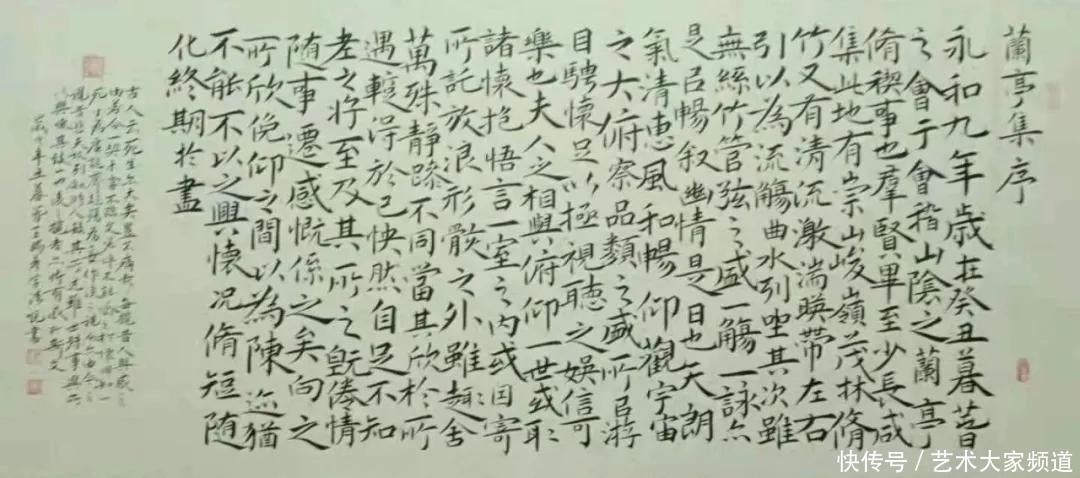 蘭亭集序
永和九年歲在癸丑暮春
之會于會稽山陰之蘭亭
脩稧事也羣賢畢至少長咸
集此地有崇山峻嶺茂林脩
竹又有清流激湍暎帶左右
引以為流觴曲水列坐其次雖
無絲竹管弦之盛一觴一詠亦
是以暢叙幽情是日也天朗
氣清惠風和暢仰觀宇宙
之大俯察品類之盛所以遊
目騁懷足以極視聽之娛信可
樂也夫人之相與俯仰一世或取
諸懷抱悟言一室之內或因寄
所託放浪形骸之外雖趣舍
萬殊靜躁不同當其欣於所
遇蹔得於己快然自足不知
老之將至及其所之既倦情
随事遷感慨係之矣向之
所欣俛仰之間以為陳迹猶
不能不以之興懷況脩短随
化終期於盡
古人云死生亦大矣豈不痛哉每覽昔人興感之
快传号／艺术大家频道